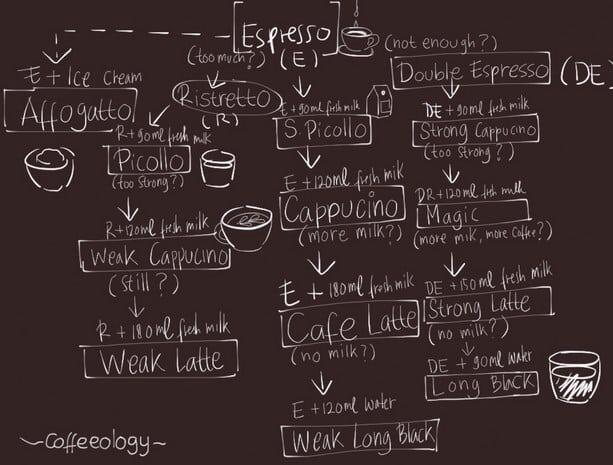 Espresso
(E)
(too much?)
(not enough?)
E + Ice Cream
Affogatto
Ristretto
(R)
R+90ml fresh milk
Picollo
(too strong?)
R+120ml fresh milk
Weak Cappucino
(still?)
R + 180ml fresh milk
Weak Latte
E + 90ml fresh milk
S. Picollo
E + 120ml fresh milk
Cappucino
(more milk?)
E + 180ml fresh milk
Cafe Latte
(no milk?)
E + 120ml water
Weak Long Black
Double Espresso (DE)
DE + 90ml fresh milk
Strong Cappucino
(too strong?)
DR+120ml fresh milk
Magic
(more milk, more coffee?)
DE + 150ml fresh milk
Strong Latte
(no milk?)
DE + 90ml water
Long Black
~Coffeeology~